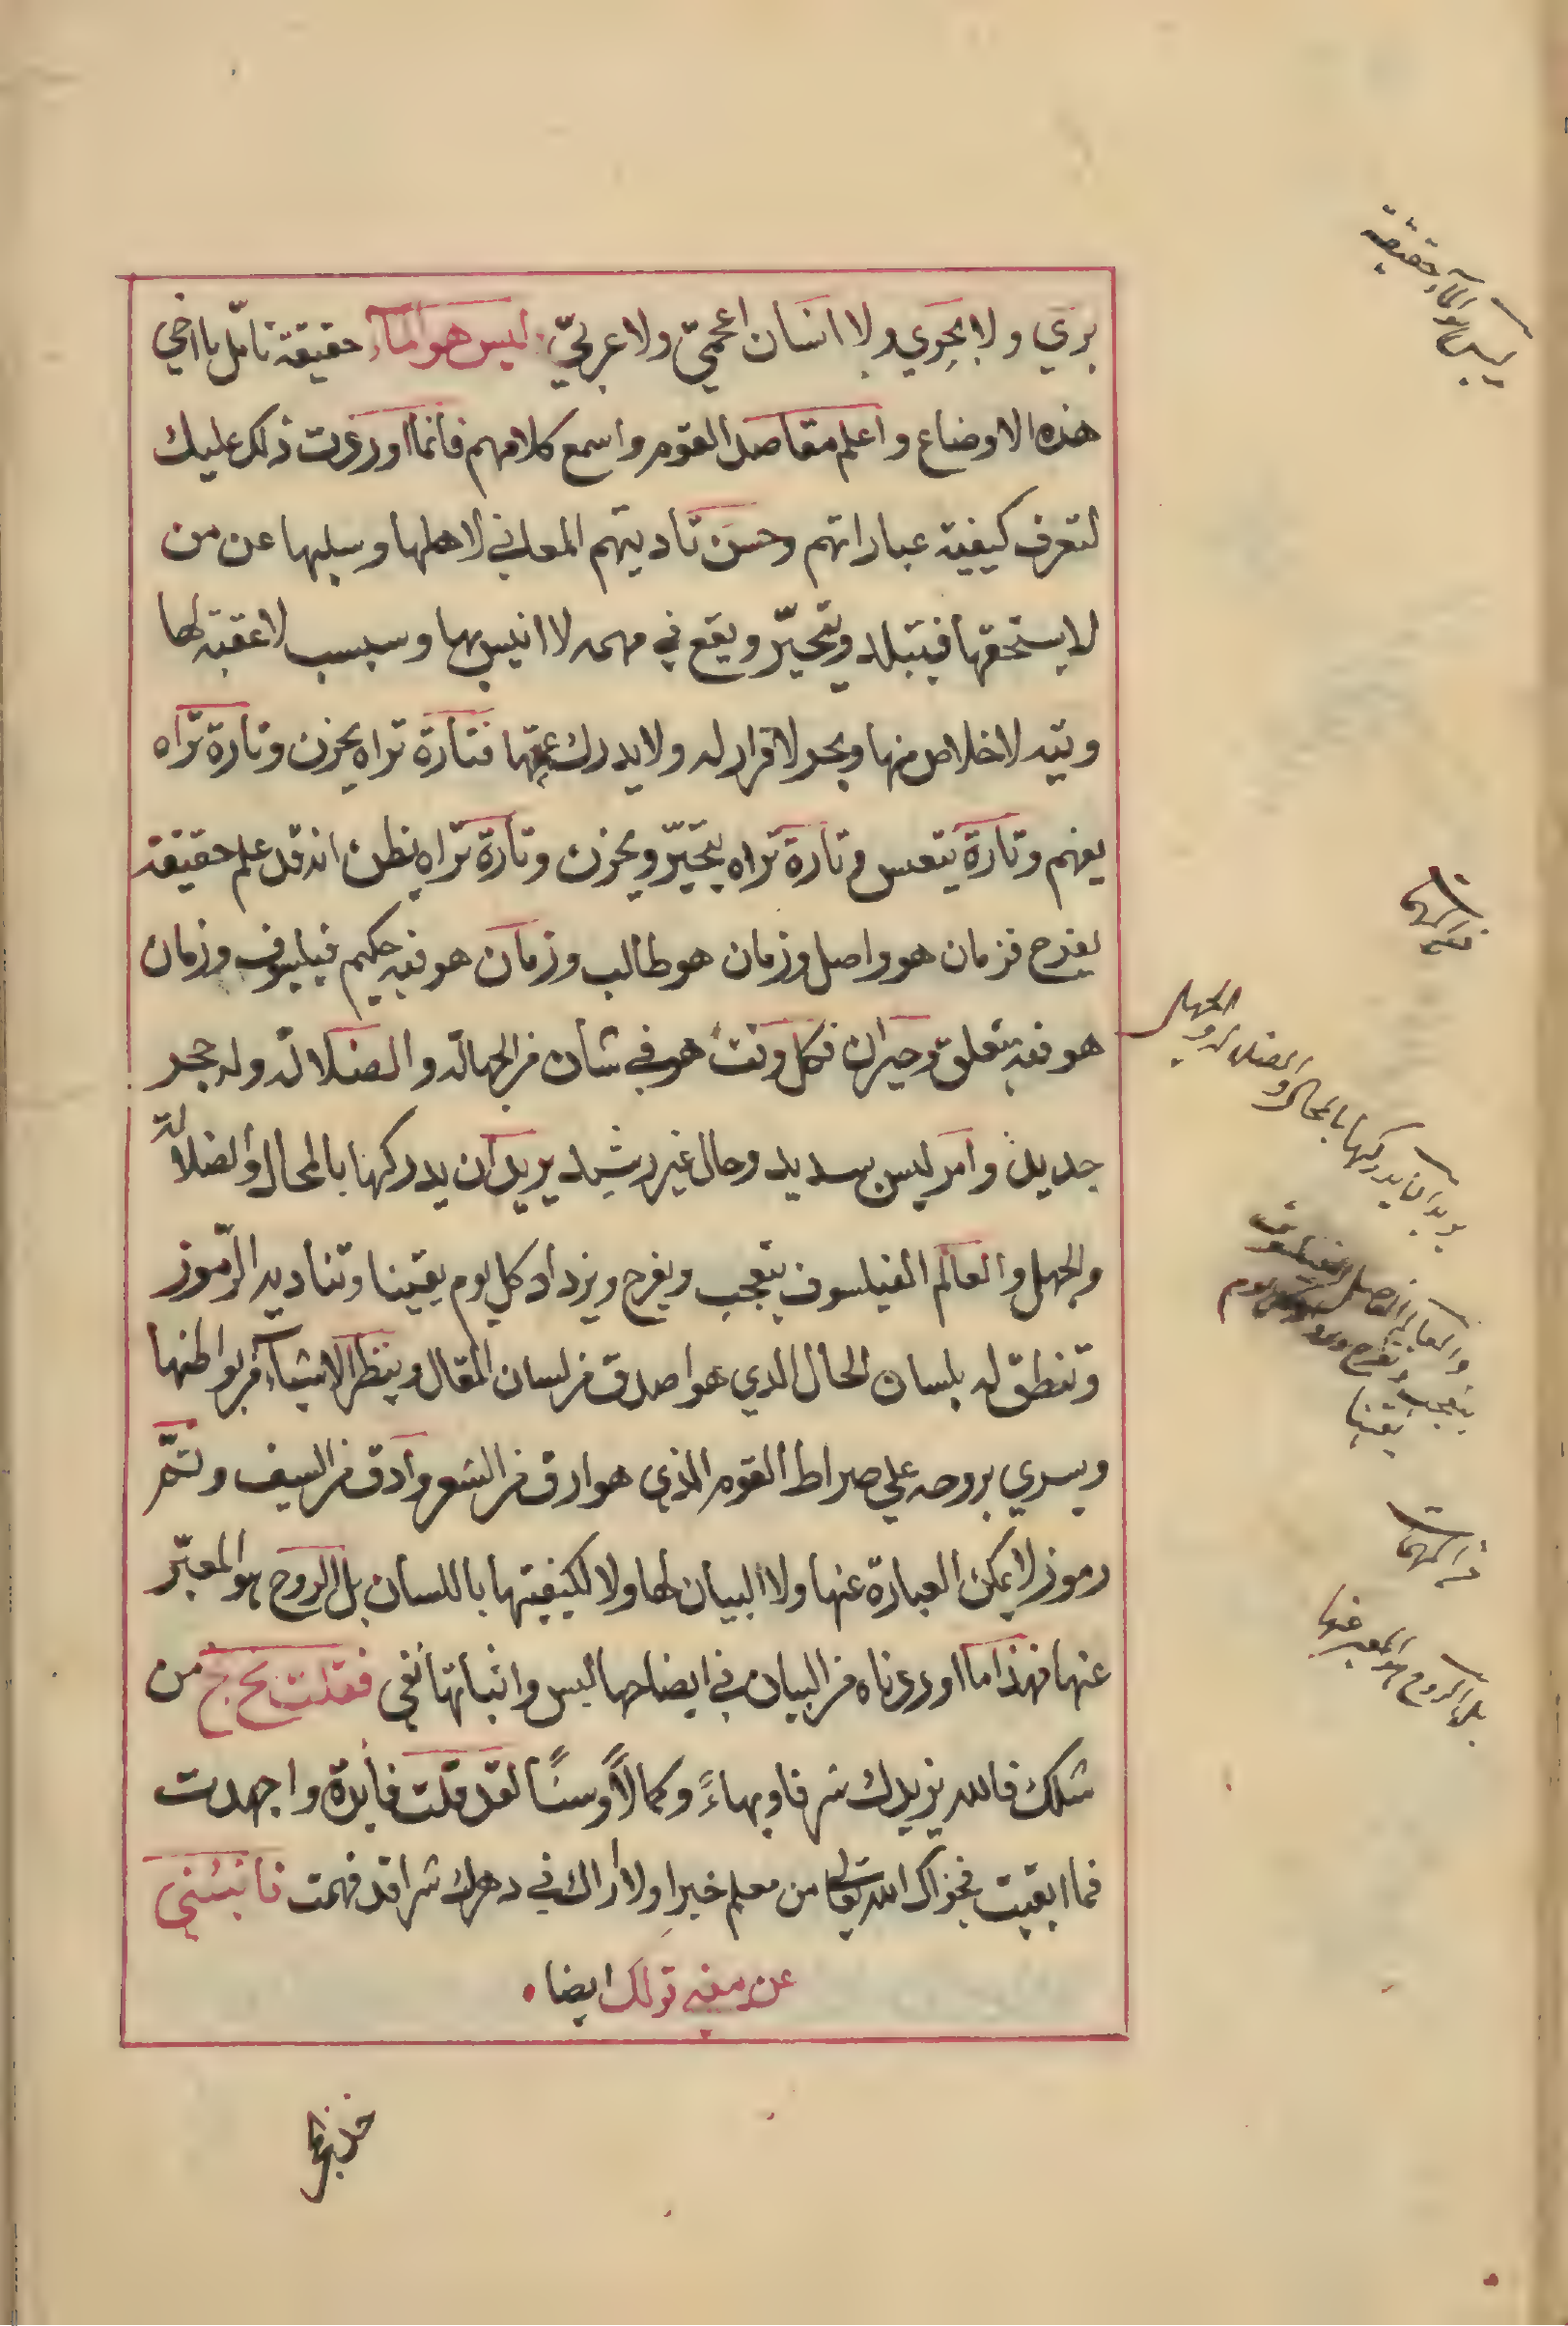 بري ولا بحري ولا انسان اعجميّ ولا عربيّ ليس هو المآء حقيقة تامّل يا اخي
هذه الاوضاع واعلم مقاصد القوم واسمع كلامهم فانما اوردت ذلك عليك
لتعرف كيفية عباراتهم وحسن تاديتهم المعاني لاهلها وسلبها عن من
لا يستحقها فيتبلد ويتحيّر ويقع في مهمه لا انيس بها وسبسب لا عقبة لها
وتيه لا خلاص منها وبحر لا قرار له ولا يدرك عمقها فتارة تراه يحزن وتارة تراه
يفهم وتارة يتعس وتارة تراه يتحيّر ويحزن وتارة تراه يظن انه قد علم حقيقة
يفرح فزمان هو واصل وزمان هو طالب وزمان هو فيه حكيم فيلسوف وزمان
هو فيه متعلق وحيران فكل وقت هو في شأن من الجهالة والضلالة وله حجر
جديد وامر ليس بسديد وحال غير رشيد يريد ان يدركها بالمحال والضلالة
والجهل والعالم الفيلسوف يتعجب ويفرح ويزداد كل يوم يقينا وتناديه الرّموز
وتنطق له بلسان الحال الذي هو اصدق من لسان المقال وينظر الاشيآء من بواطنها
ويسري بروحه علي صراط القوم الذي هو ارق من الشعر وادق من السيف ولثمّ
رموز لا يمكن العبارة عنها ولا البيان لها ولا لكيفيتها باللسان بل الروح هو المعبّر
عنها فهذا ما اوردناه من البيان في ايضاحها ليس واثباتها نفي فقلت بخ بخ من
مثلك فالله يزيدك شرفا وبهاءً وكمالاً وسناً لقد قلت فايدة واجهدت
فما ابقيت فجزاك الله تعالى من معلم خيرا ولا اراك في دهرك شرا قد فهمت فانبئني
عن معنى قولك ايضا
ليس هو المآء حقيقة
والضلالة والجهل
يريد ان يدركها بالمحال
والعالم الفاضل الفيلسوف
يتعجب ويفرح ويزداد كل يوم
يقينا
بل الروح هو المعبر عنها